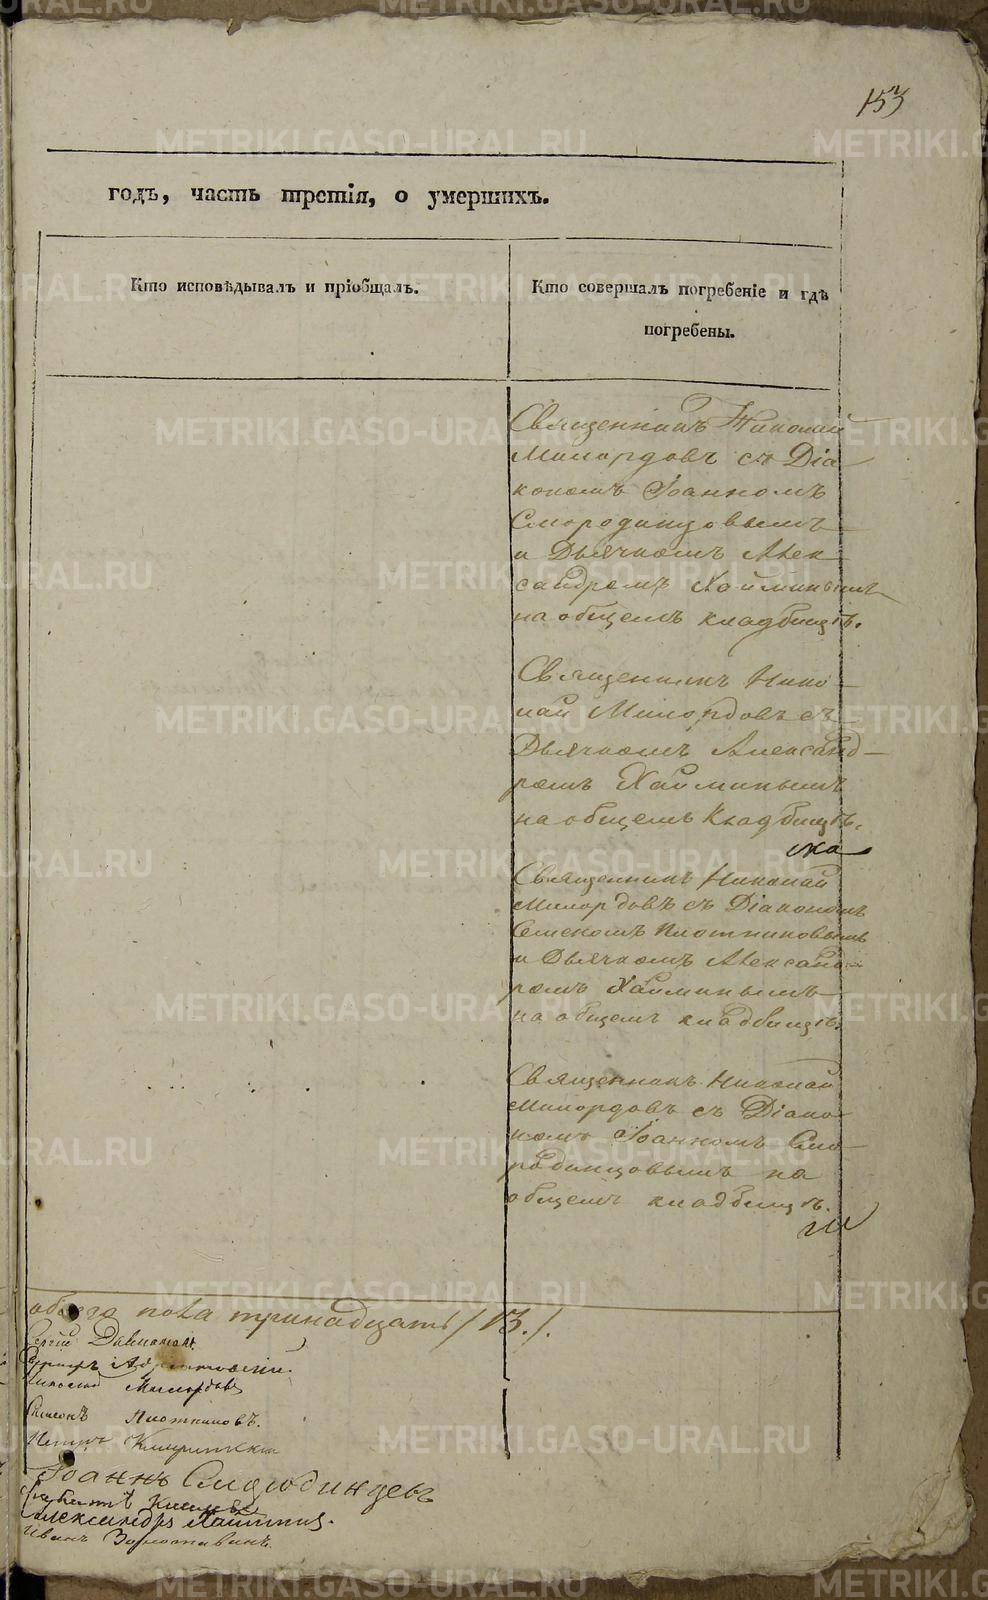 153
годъ, часть третія, о умершихъ.
Кто исповѣдывалъ и пріобщалъ.
Кто совершалъ погребеніе и гдѣ
погребены.
Священникъ Николай
Милордовъ съ Діа
кономъ Іоанномъ
Смородинцовымъ
и Дьячкомъ Алек
сандромъ Хайминымъ
на общемъ кладбищѣ.
Священникъ Нико
лай Милордовъ съ
Дьячкомъ Александ
ромъ Хайминымъ
на общемъ Кладбищѣ.
Священникъ Николай
Милордовъ съ Діакономъ
Семеномъ Плотниковымъ
и Дьячкомъ Александ
ромъ Хайминымъ
на общемъ кладбищѣ.
Священникъ Николай
Милордовъ съ Діако
номъ Іоанномъ Смо
родинцовымъ на
общемъ кладбищѣ.
обоего пола тринадцать /13./.
Сергій
Николай Милордовъ
Симеонъ Плотниковъ.
Петръ
Іоаннъ Смородинцевъ
Александръ Хайминъ.
Иванъ Золотавинъ.
METRIKI.GASO-URAL.RU